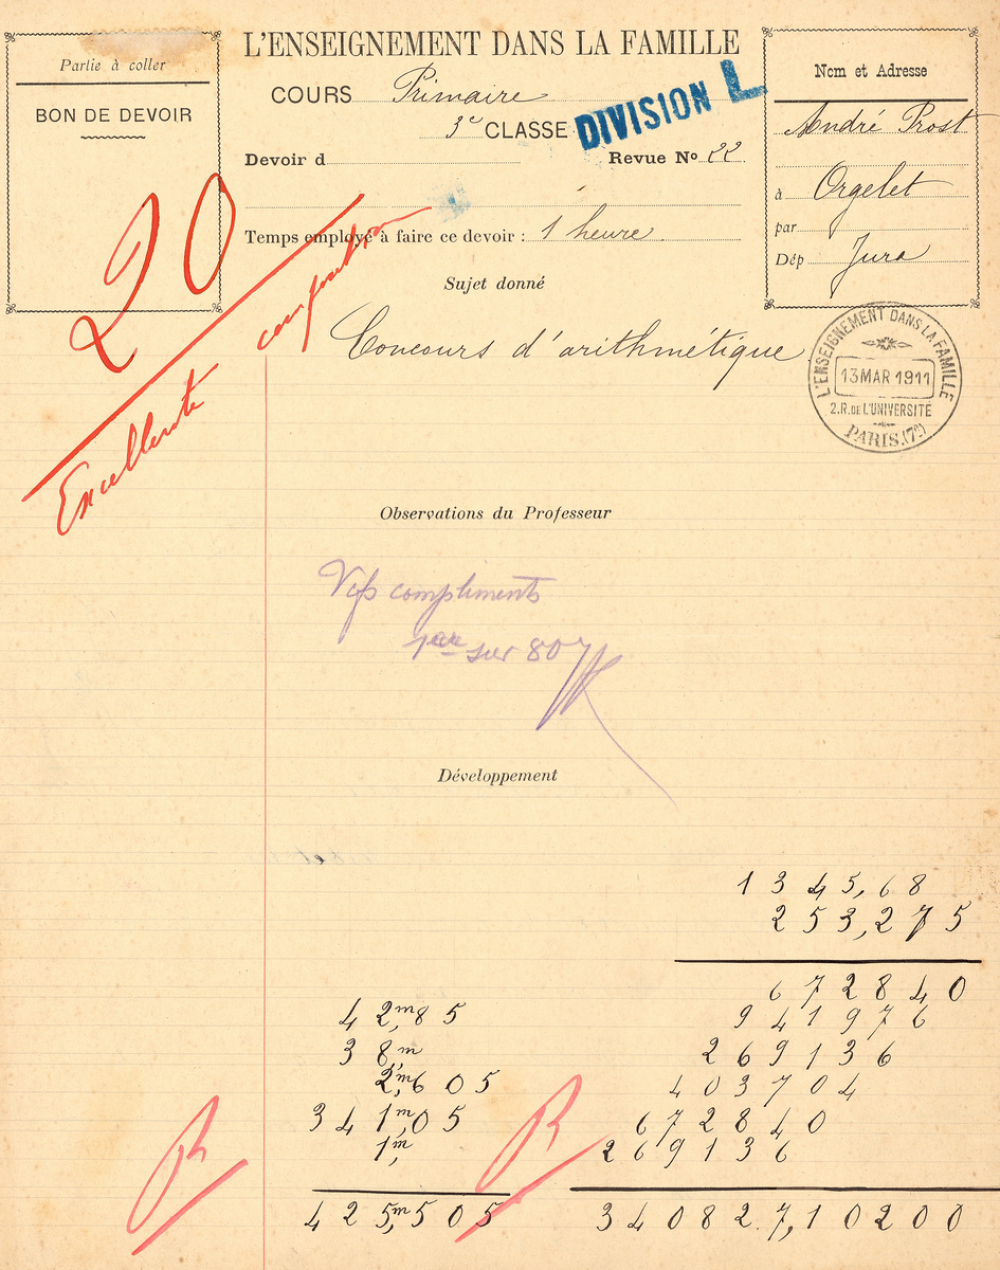 Partie à coller
BON DE DEVOIR
L'ENSEIGNEMENT DANS LA FAMILLE
COURS Primaire
3e CLASSE
DIVISION L
Devoir d
Revue No 22
Temps employé à faire ce devoir : 1 heure
Nom et Adresse
André Prost
à Orgelet
par
Dép Jura
20
Excellente composition
Sujet donné
Concours d'arithmétique
L'ENSEIGNEMENT DANS LA FAMILLE
13 MAR 1911
2.R.DE L'UNIVERSITÉ
PARIS.(7e)
Observations du Professeur
compliments
1er sur 80
Développement
1345,68
253,275
672840
941976
269136
403704
672840
269136
340827,10200
42,m85
38,m
2,m605
341,m05
1,m
425,m505